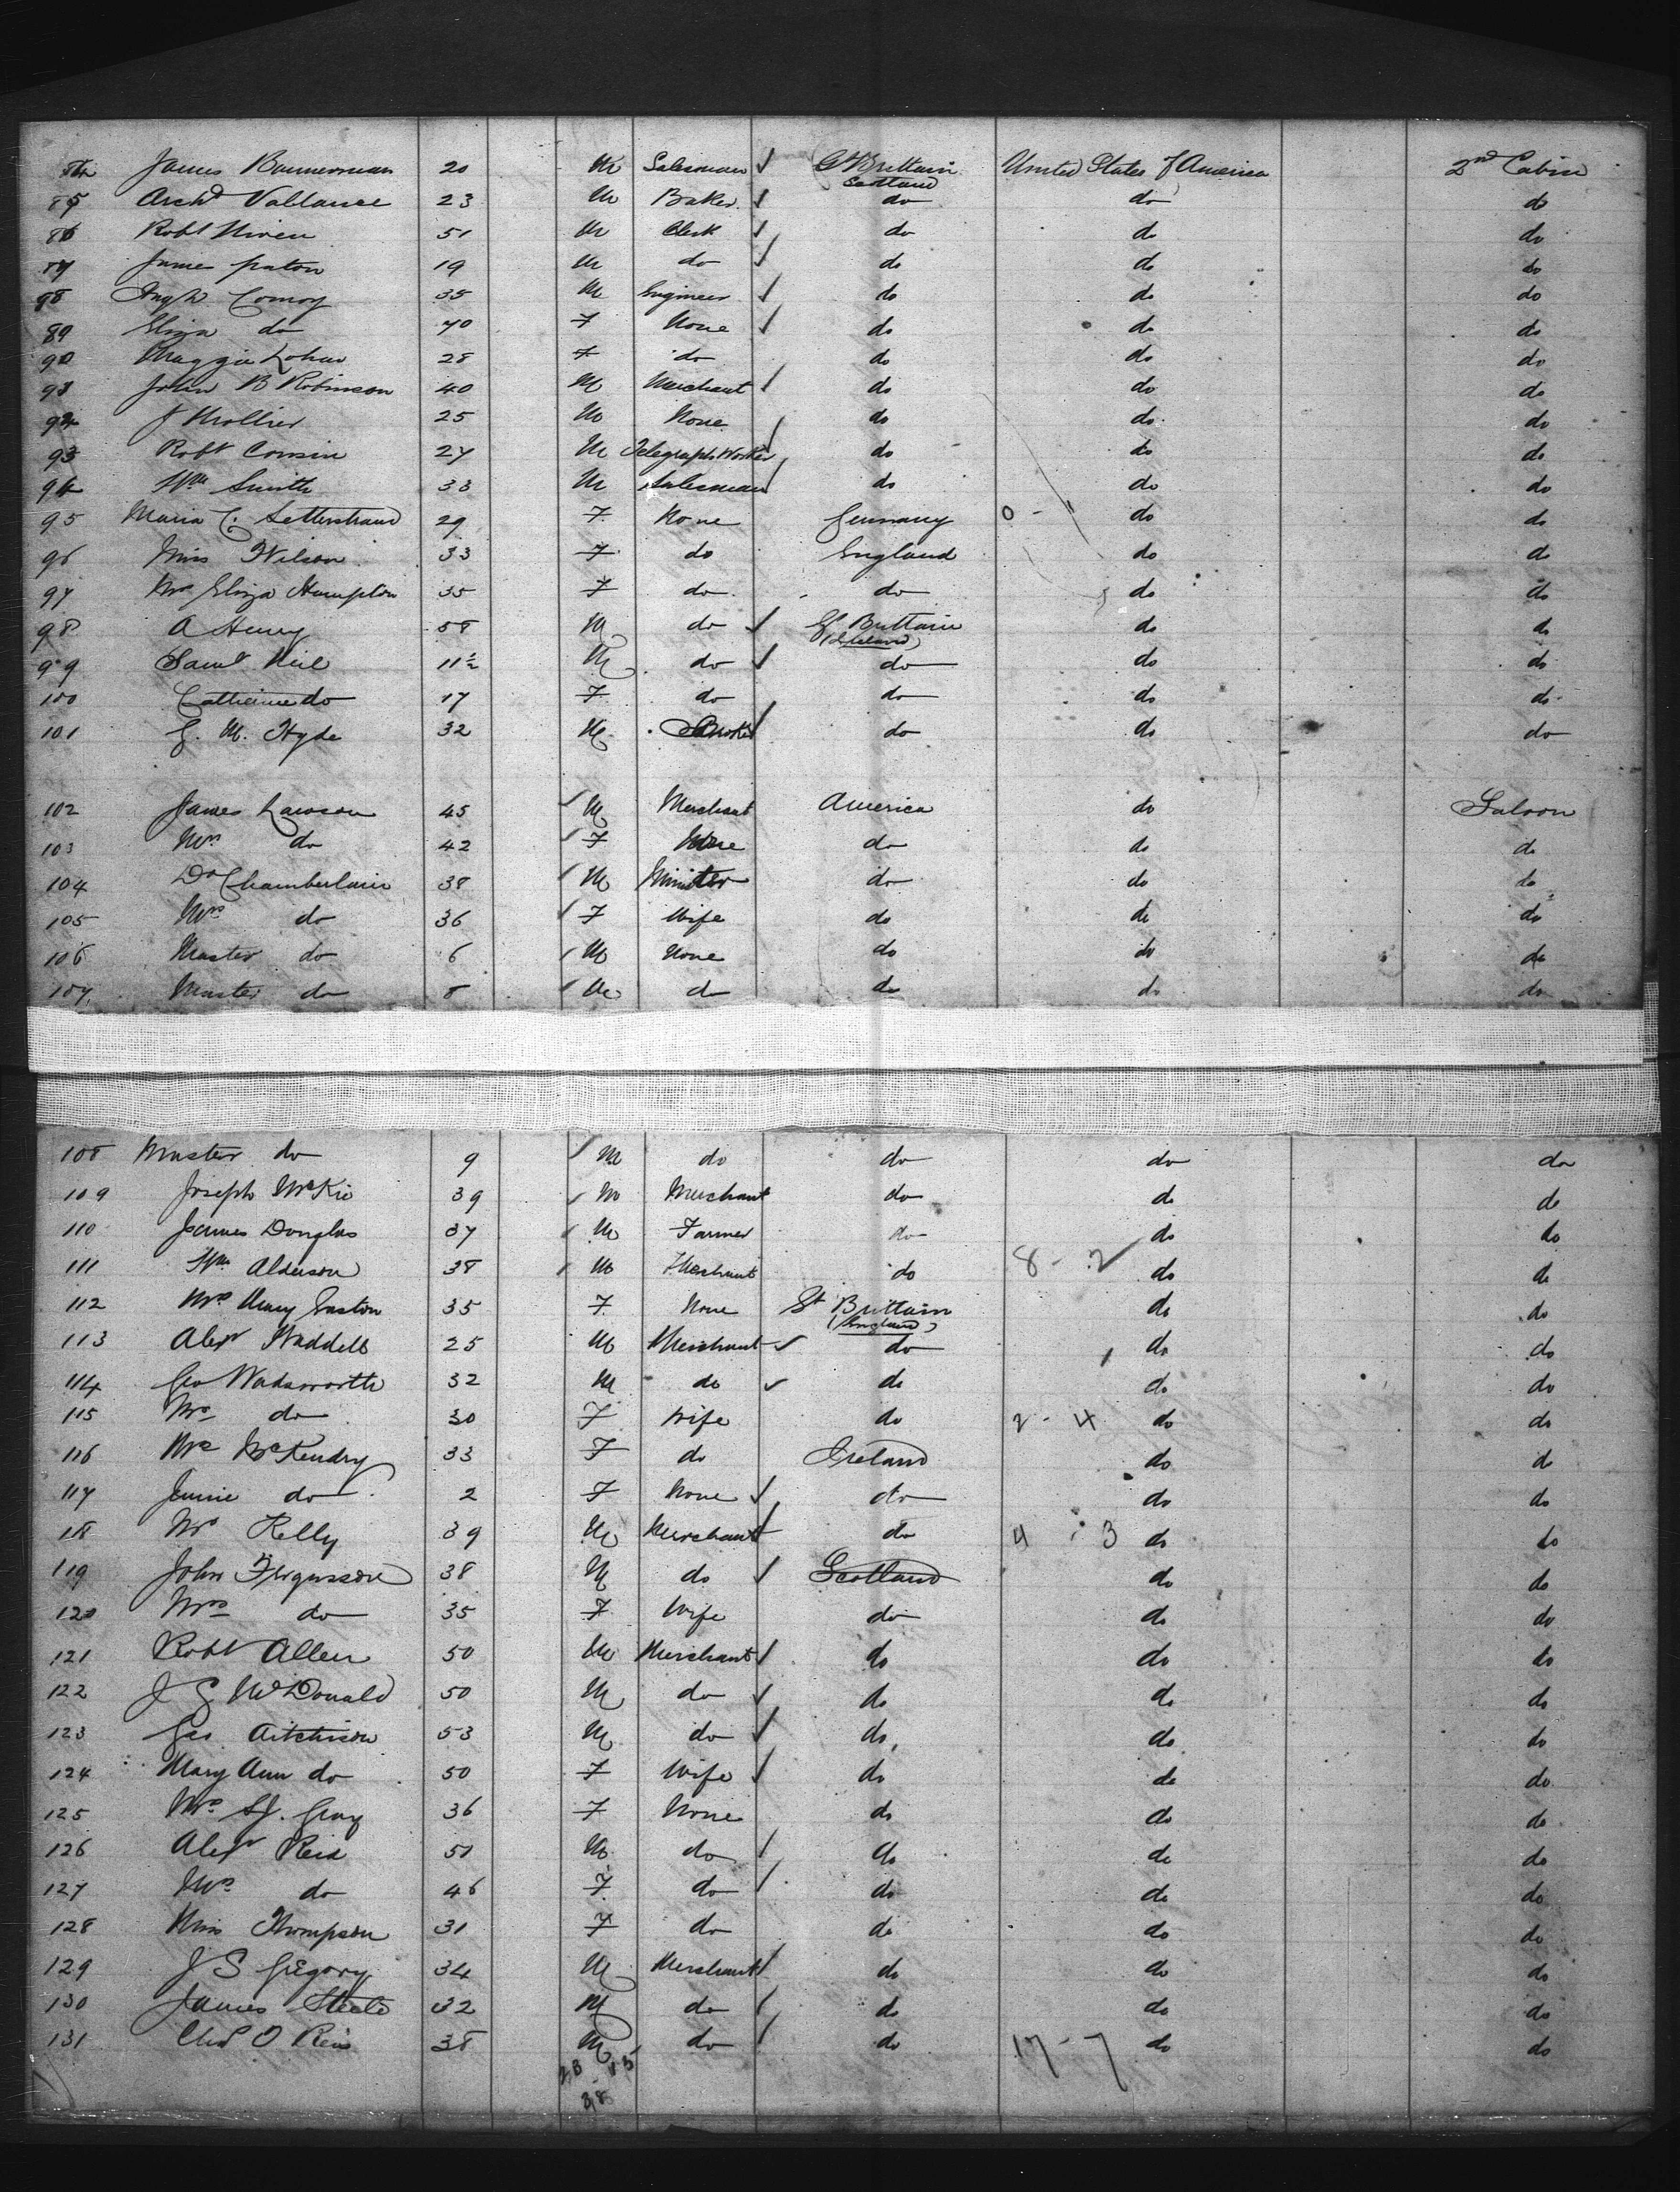 84 James Bannerman 20 M Salesman ✓ Gt Brittain United States of America 2nd Cabin
Scotland
85 Archd Vallance 23 M Baker ✓ do do do
86 Robt Niven 51 M Clerk ✓ do do do
87 James paton 19 M do ✓ do do do
88 Hugh Conroy 35 M Engineer ✓ do do do
89 Eliza do 40 F None ✓ do do do
90 Maggie 28 F do do do do
91 John B Robinson 40 M Merchant ✓ do do do
92 J Mollier 25 M None do do do
93 Robt Cousin 27 M Telegraph Worker ✓ do do do
94 Wm Smith 33 M Salesman ✓ do do do
95 Maria C. Setterstrand 29 F None Germany 0 - 1 do do
96 Miss Wilson 33 F do England do do
97 Mrs Eliza Hampton 35 F do do do do
98 A Henry 58 M do ✓ Gt Brittain do do
(Ireland)
99 Saml Neil 11½ M do ✓ do do do
100 Catherine do 17 F do do do do
101 G. M. Hyde 32 M Broker ✓ do do do
102 James Lawson 45 ✓ M Merchant America do Saloon
103 Mrs do 42 ✓ F None do do do
104 Dr Chamberlain 38 ✓ M Minister do do do
105 Mrs do 36 ✓ F Wife do do do
106 Master do 6 ✓ M None do do do
107 Master do 8 ✓ M do do do do
108 Master do 9 ✓ M do do do do
109 Joseph McKie 39 ✓ M Merchant do do do
110 James Douglas 37 ✓ M Farmer do do do
111 Wm Alderson 38 ✓ M Merchant do 8 - 2 ✓ do do
112 Mrs Mary Easton 35 F None Gt Brittain do do
(England)
113 Alexr Waddell 25 M Merchant ✓ do do do
114 Geo Wadsworth 32 M do ✓ do do do
115 Mrs do 30 F Wife do 2 - 4 do do
116 Mrs McKendry 33 F do Ireland do do
117 Jennie do 2 F None ✓ do do do
118 Mr Kelly 39 M Merchant ✓ do 4 - 3 do do
119 John Fergusson 38 M do ✓ Scotland do do
120 Mrs do 35 F Wife do do do
121 Robt Allen 50 M Merchant ✓ do do do
122 J G McDonald 50 M do ✓ do do do
123 Geo Aitchison 53 M do ✓ do do do
124 Mary Ann do 50 F Wife ✓ do do do
125 Mrs S J. Gray 36 F None do do do
126 Alexr Reid 51 M do ✓ do do do
127 Mrs do 46 F do ✓ do do do
128 Miss Thompson 31 F do do do do
129 J S Gregory 34 M Merchant ✓ do do do
130 James Steele 32 M do ✓ do do do
131 Chas O Reid 38 M do ✓ do 17 - 7 do do
23 - 15
38